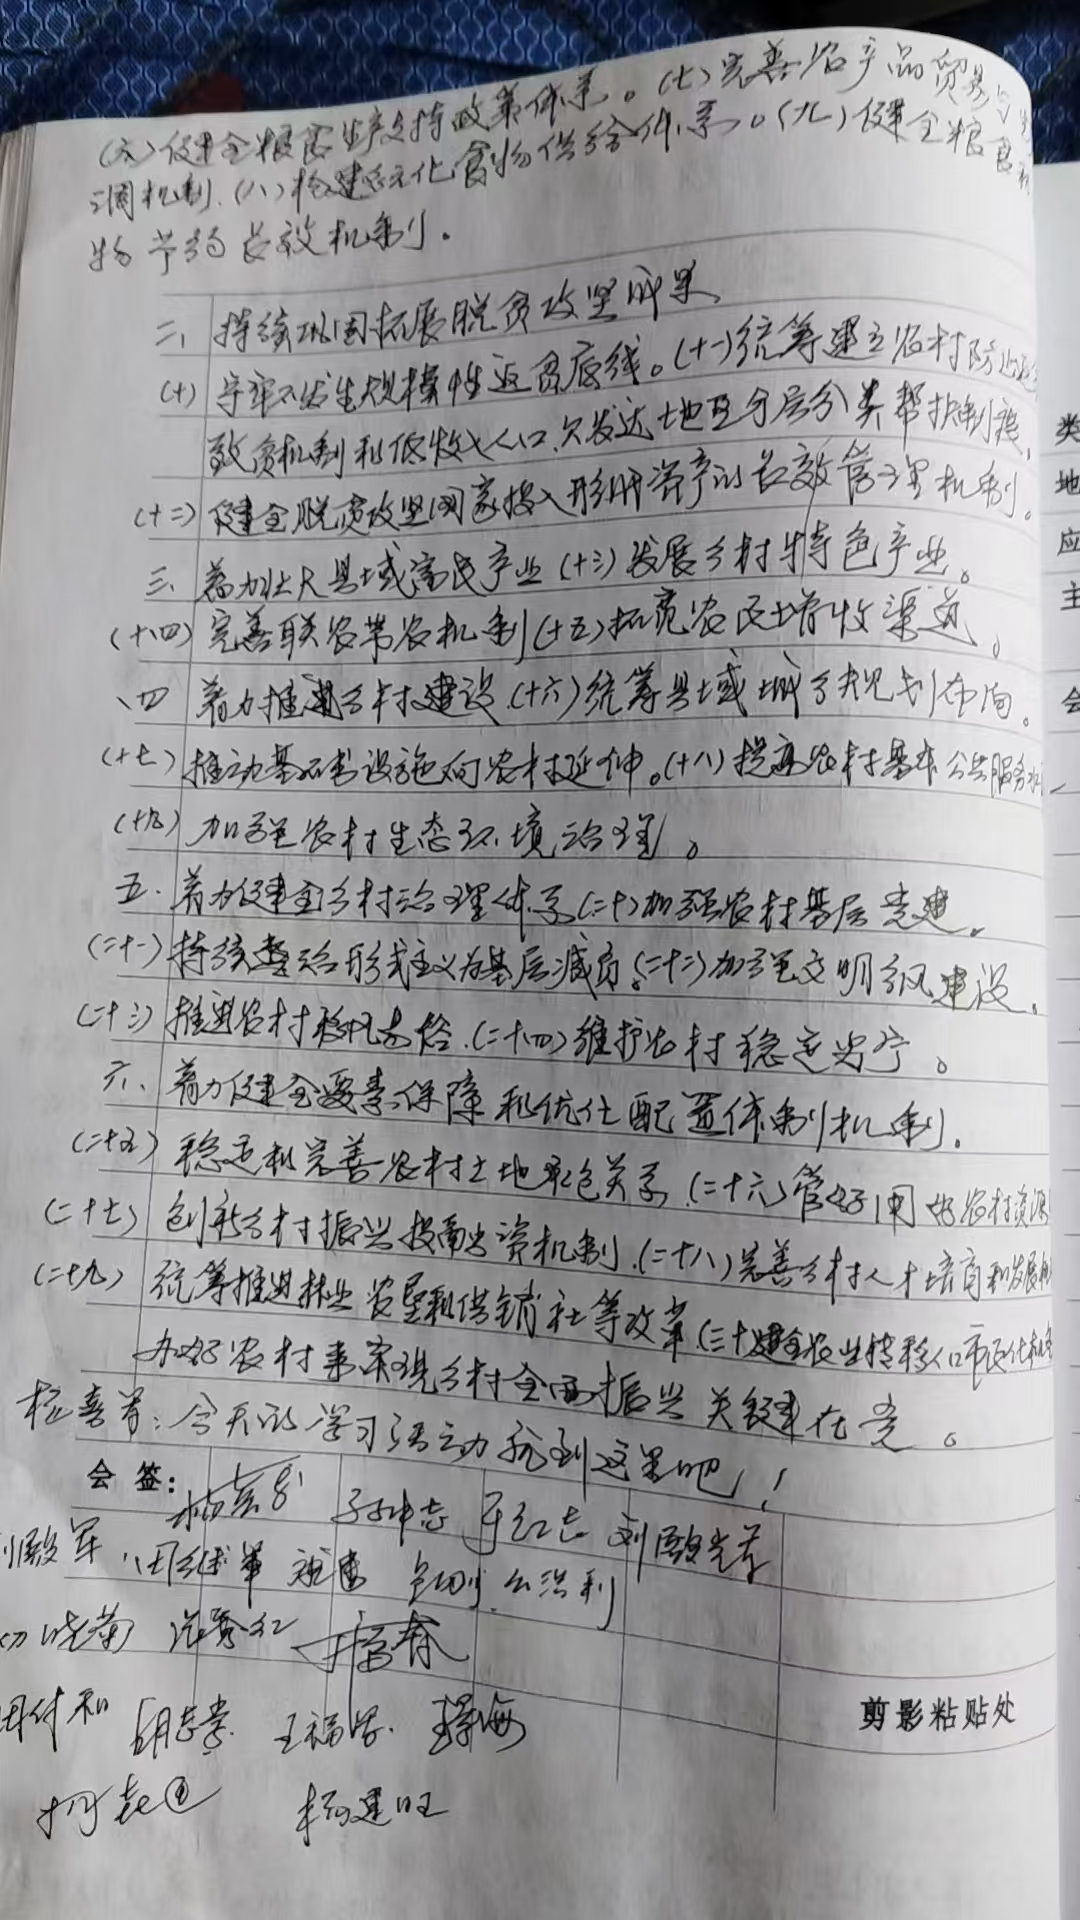 (六)健全粮食生产支持政策体系。(七)完善农产品贸易与生
调机制.(八)构建多元化食物供给体系。(九)健全粮食和
物节约长效机制。
二、持续巩固拓展脱贫攻坚成果
(十)守牢不发生规模性返贫底线。(十一)统筹建立农村防止返
致贫机制和低收入人口、欠发达地区分层分类帮扶制度,
(十二)健全脱贫攻坚国家投入形成资产的长效管理机制。
三、着力壮大县域富民产业(十三)发展乡村特色产业。
(十四)完善联农带农机制(十五)拓宽农民增收渠道。
四 着力推进乡村建设.(十六)统筹县域城乡规划布局。
(十七)推动基础设施向农村延伸。(十八)提高农村基本公共服务水
(十九)加强农村生态环境治理。
五.着力健全乡村治理体系(二十)加强农村基层党建。
(二十一)持续整治形式主义为基层减负。(二十二)加强文明乡风建设。
(二十三)推进农村移风易俗.(二十四)维护农村稳定安宁。
六、着力健全要素保障和优化配置体制机制。
(二十五)稳定和完善农村土地承包关系.(二十六)管好用好农村资源
(二十七)创新乡村振兴投融资机制.(二十八)完善乡村人才培育和发展机
(二十九)统筹推进林业农垦和供销社等改革(三十)健全农业转移人口市民化机制
办好农村事实现乡村全面振兴关键在党。
今天的学习活动就到这里吧!
会签:
刘殿军
王福
杨建旺
剪影粘贴处
类
地
应
主
会